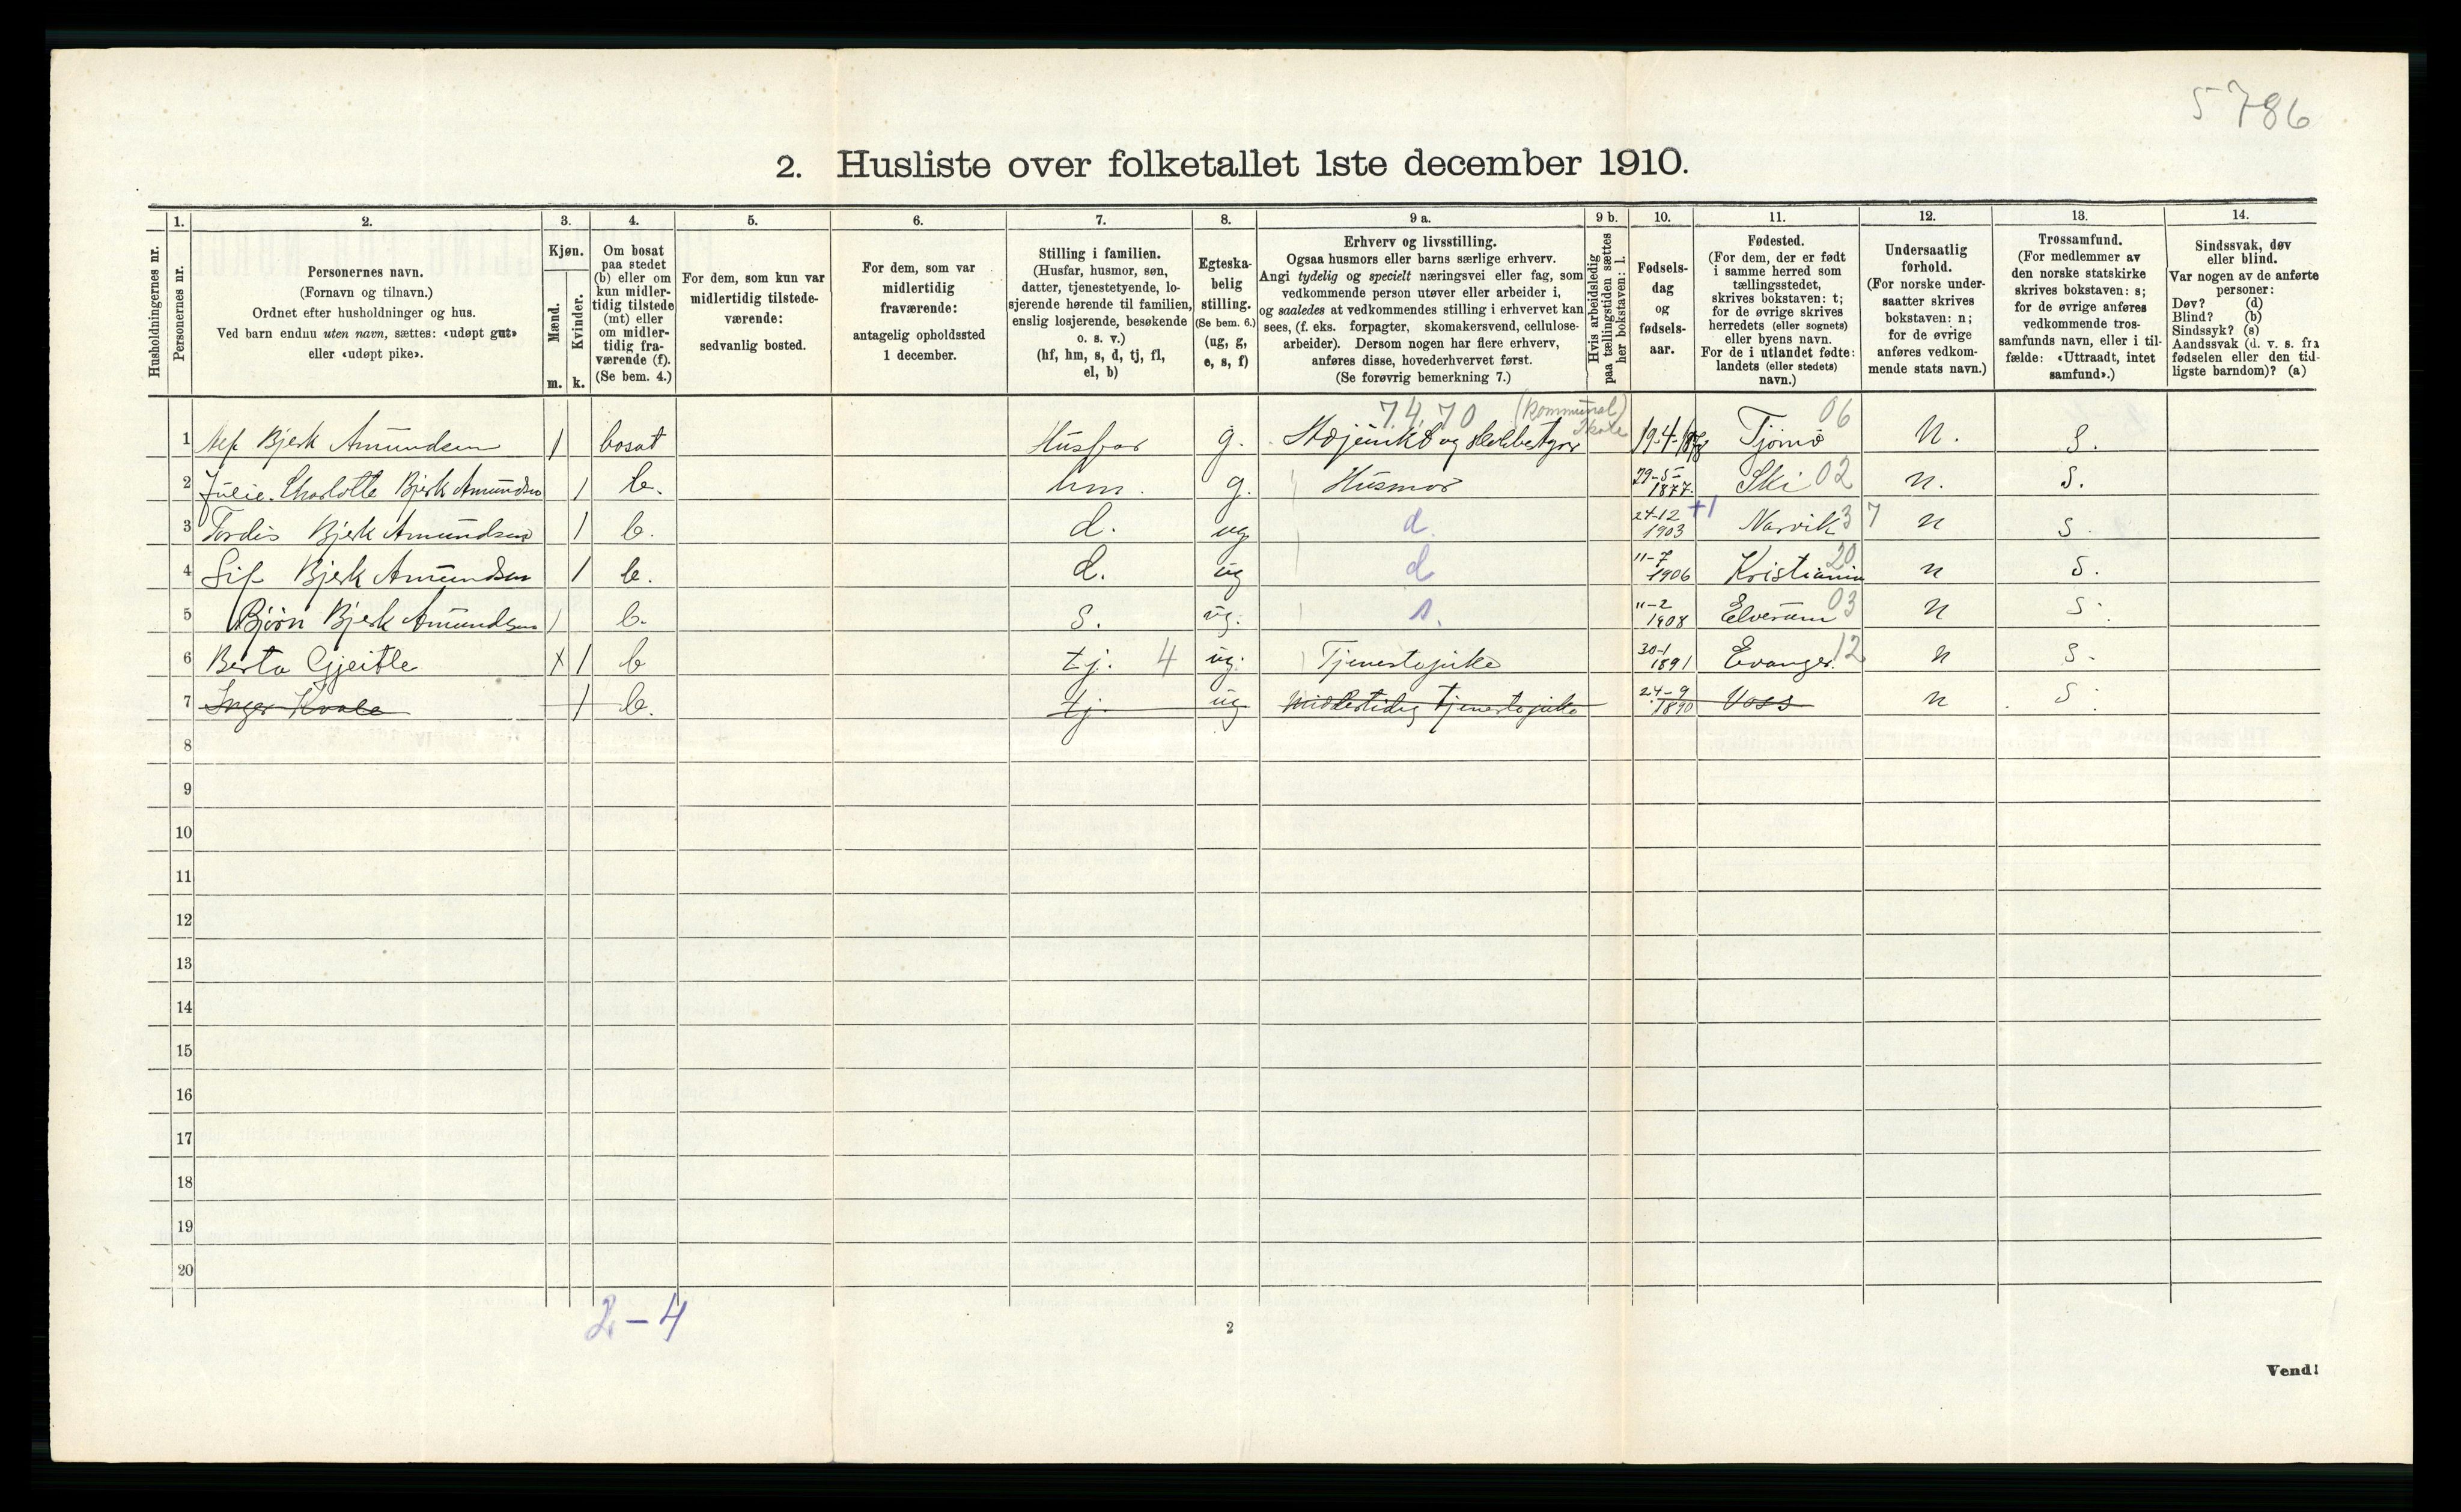 5786
2. Husliste over folketallet 1ste december 1910.
Husholdningernes nr.
1. Personernes nr.
2. Personernes navn.
(Fornavn og tilnavn.)
Ordnet efter husholdninger og hus.
Ved barn endnu uten navn, sættes: «udøpt gut»
eller «udøpt pike».
3. Kjøn.
Mænd. m.
Kvinder. k.
4. Om bosat
paa stedet
(b) eller om
kun midler-
tidig tilstede
(mt) eller
om midler-
tidig fra-
værende (f).
(Se bem. 4.)
5. For dem, som kun var
midlertidig tilstede-
værende:
sedvanlig bosted.
6. For dem, som var
midlertidig
fraværende:
antagelig opholdssted
1 december.
7. Stilling i familien.
(Husfar, husmor, søn,
datter, tjenestetyende, lo-
sjerende hørende til familien,
enslig losjerende, besøkende
o. s. v.)
(hf, hm, s, d, tj, fl,
el, b)
8. Egteska-
belig
stilling.
(Se bem. 6.)
(ug, g,
e, s, f)
9 a. Erhverv og livsstilling.
Ogsaa husmors eller barns særlige erhverv.
Angi tydelig og specielt næringsvei eller fag, som
vedkommende person utøver eller arbeider i,
og saaledes at vedkommendes stilling i erhvervet kan
sees, (f. eks. forpagter, skomakersvend, cellulose-
arbeider). Dersom nogen har flere erhverv,
anføres disse, hovederhvervet først.
(Se forøvrig bemerkning 7.)
9 b. Hvis arbeidsledig
paa tællingstiden sættes
her bokstaven: l.
10. Fødsels-
dag
og
fødsels-
aar.
11. Fødested.
(For dem, der er født
i samme herred som
tællingsstedet,
skrives bokstaven: t;
for de øvrige skrives
herredets (eller sognets)
eller byens navn.
For de i utlandet fødte:
landets (eller stedets)
navn.)
12. Undersaatlig
forhold.
(For norske under-
saatter skrives
bokstaven: n;
for de øvrige
anføres vedkom-
mende stats navn.)
13. Trossamfund.
(For medlemmer av
den norske statskirke
skrives bokstaven: s;
for de øvrige anføres
vedkommende tros-
samfunds navn, eller i til-
fælde: «Uttraadt, intet
samfund».)
14. Sindssvak, døv
eller blind.
Var nogen av de anførte
personer:
Døv? (d)
Blind? (b)
Sindssyk? (s)
Aandssvak (d. v. s. fra
fødselen eller den tid-
ligste barndom)? (a)
7.4.70 (kommunal) Skole 06
1 Bjerk Amundsen 1 bosat Husfar g. og skolebestyrer 19-4- Tjømø n. s.
2 Julie Charlotte Bjerk Amundsen 1 b. hm. g. Husmor 29-5-1877. Ski 02 n. s.
3 Tordis Bjerk Amundsen 1 b. d. ug d. 24-12 1903 +1 Narvik 37 n s.
4 Sif Bjerk Amundsen 1 b. d. ug d 11-7 1906 Kristiania 20 n s.
5 Bjørn Bjerk Amundsen 1 b. s. ug. s. 11-2 1908 Elverum 03 n s.
6 Berta Gjeitle X 1 b tj. 4 ug. Tjenestepike 30-1 1891 Evanger. 12 n s.
7 Inger Kvale 1 b. tj. ug Midlertidig Tjenestepike 24-9 1890 Voss n s.
8
9
10
11
12
13
14
15
16
17
18
19
20
2-4
2
Vend!